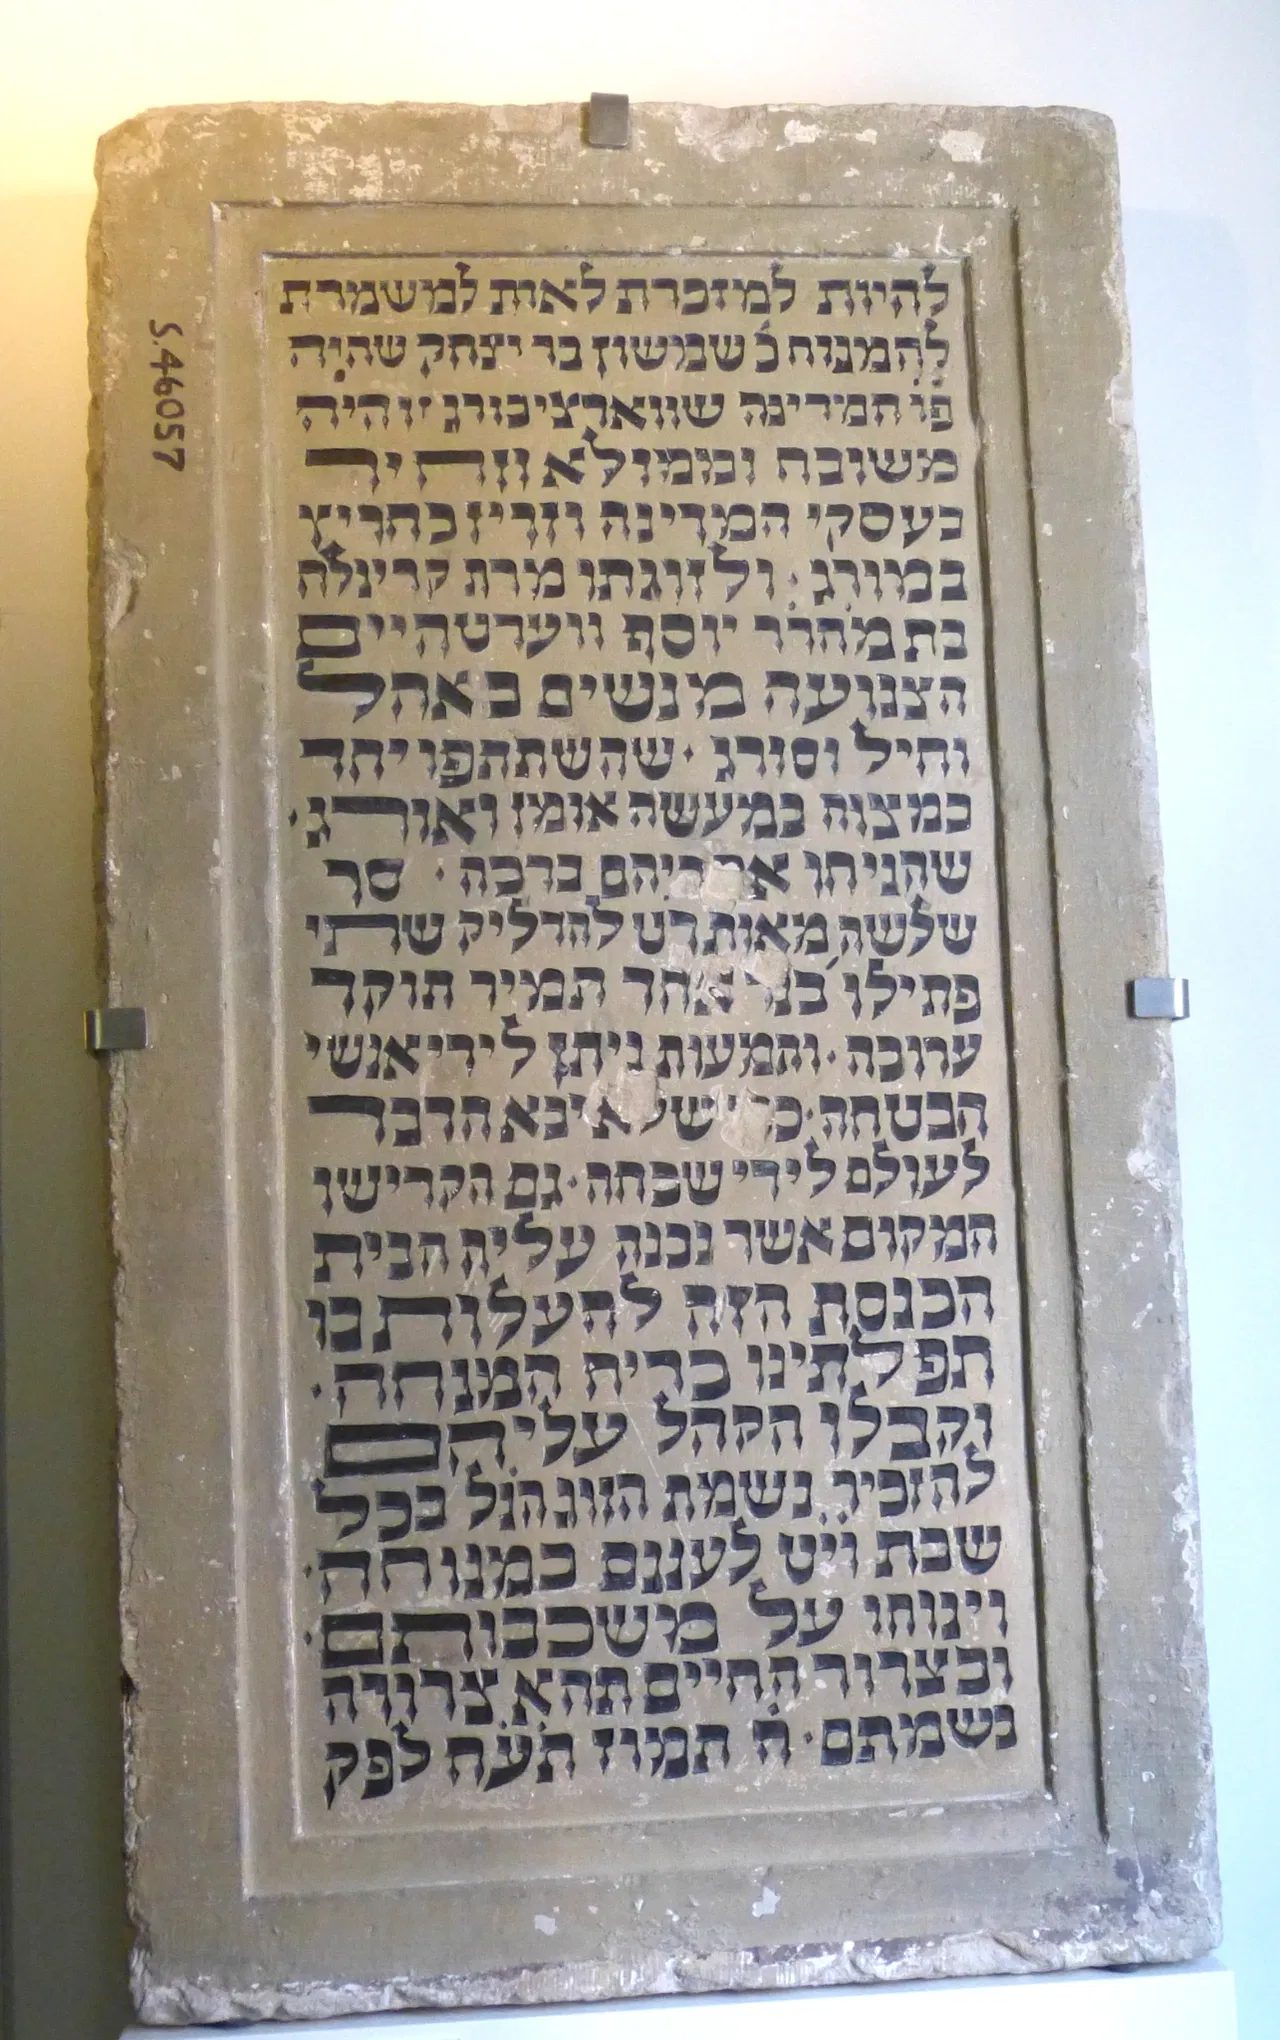 להיות למזכרת לאות למשמרת
להמנוח כ' שמשון בר יצחק שהיה
פו המדינה שווארציבורג יזהיה
משובח וממולא וזהיר
בעסקי המדינה וזריז כחריץ
במורג · ולזוגתו מרת קרינלה
בת מהרר יוסף ווערטהיים
הצנועה מנשים באהל
וחיל וסורג · שהשתתפו יחד
במצוה במעשה אומן ואורג ·
שהניחו ברכה · סך
שלשה מאות רט להדליק שתי
פתילו' בנר אחד תמיר תוקד
ערוכה · והמעות ניתן לידי אנשי
הבטחה · יבא הדבר
לעולם לידי שכחה · גם הקרישו
המקום אשר נבנה עליה הבית
הכנסת הזה להעלות בו
תפלתינו כריח המנחה ·
וקבלו הקהל עליהם
להזכיר נשמת הזוג הנ'ל בכל
שבת וי'ט לעננם במנוחה ·
וינוחו על משכבותם ·
ובצרור החיים תהא צרורה
נשמתם · ח' תמוז תע'ח לפק
S.46057